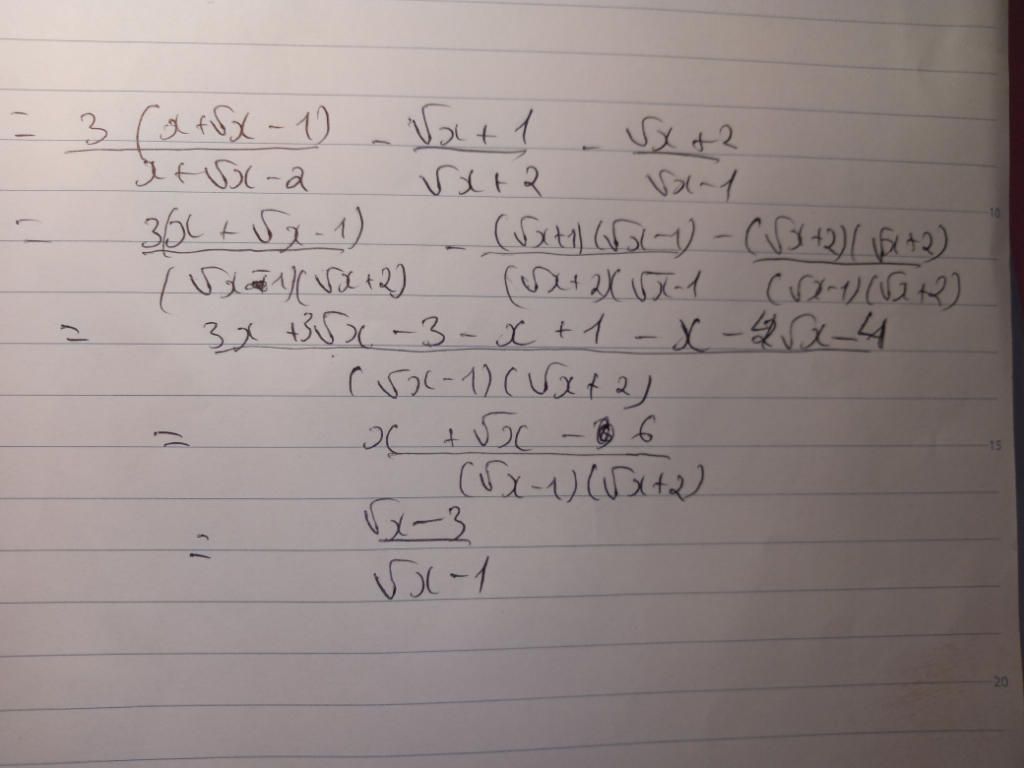 = 3 (x + √x - 1) / x + √x - 2 - √x + 1 / √x + 2 - √x + 2 / √x - 1
= 3(x + √x - 1) / (√x - 1)(√x + 2) - (√x + 1)(√x - 1) / (√x + 2)(√x - 1 - (√x + 2)(√x + 2) / (√x - 1)(√x + 2)
= 3x + 3√x - 3 - x + 1 - x - 4√x - 4 / (√x - 1)(√x + 2)
= x + √x - 6 / (√x - 1)(√x + 2)
= √x - 3 / √x - 1
10
15
20